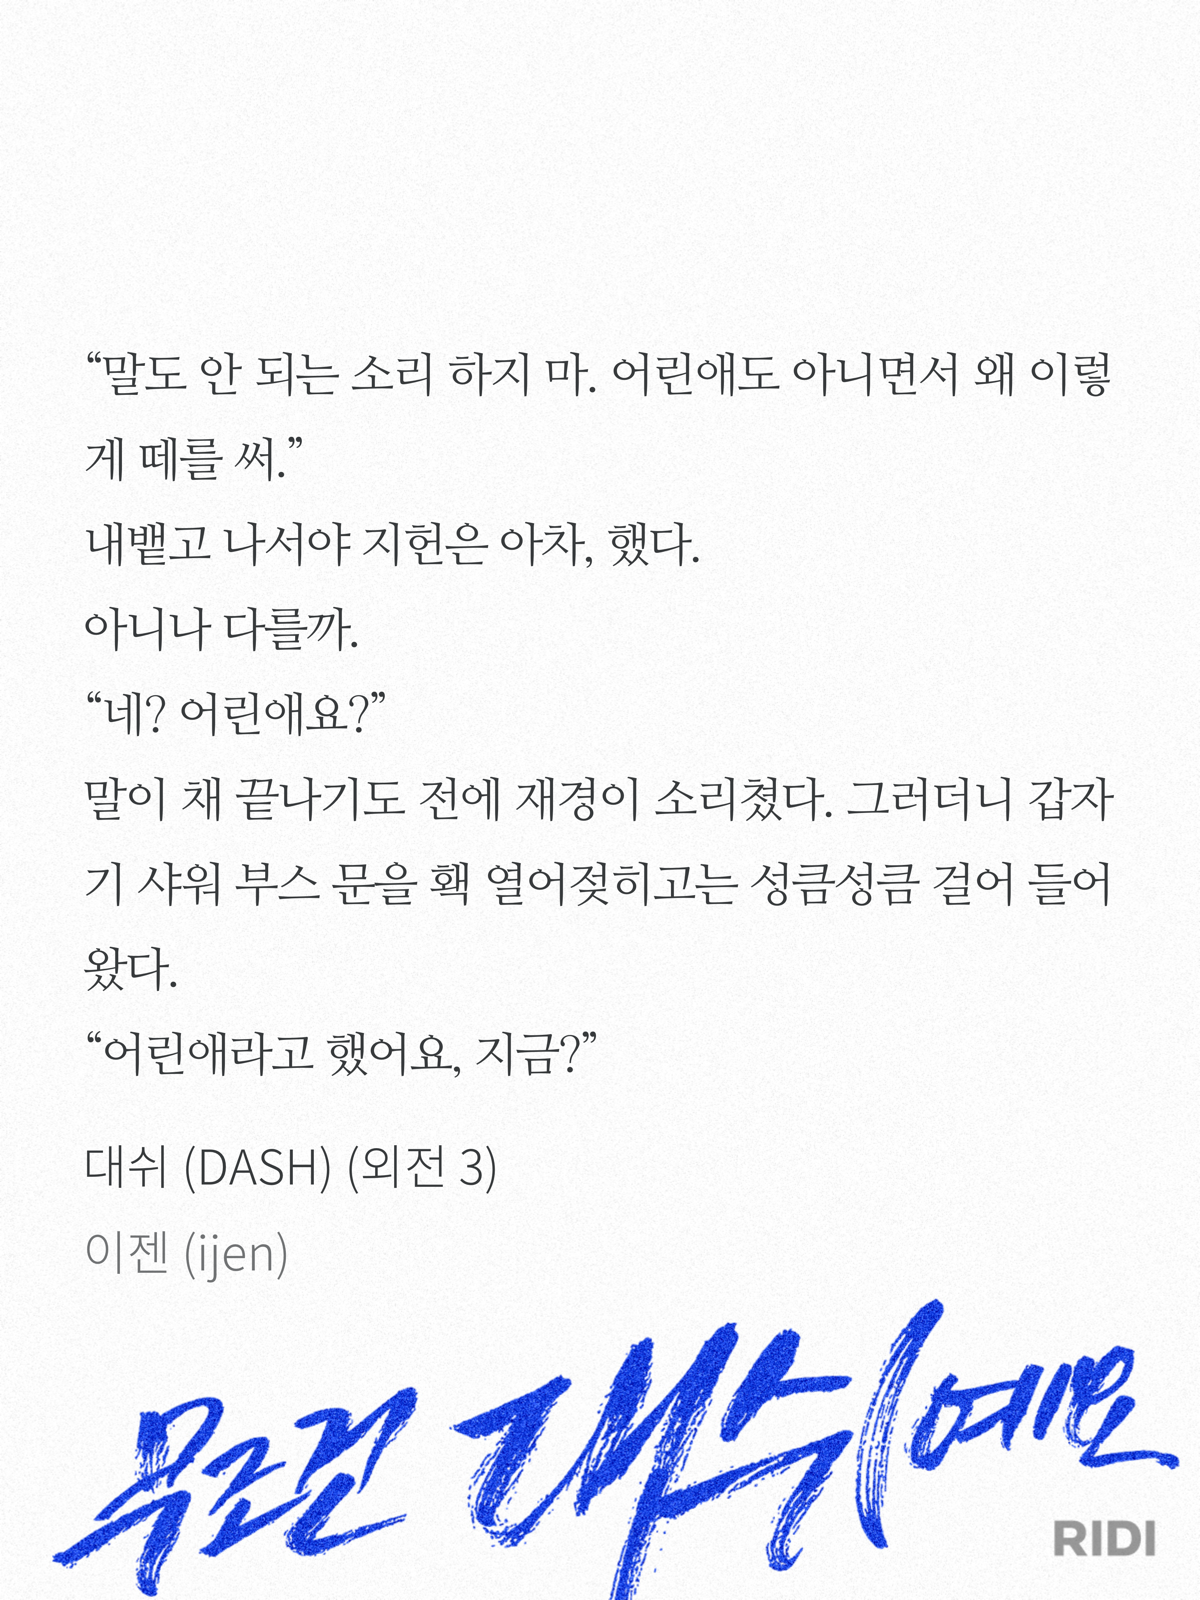 “말도 안 되는 소리 하지 마. 어린애도 아니면서 왜 이렇
게 떼를 써.”
내뱉고 나서야 지헌은 아차, 했다.
아니나 다를까.
“네? 어린애요?”
말이 채 끝나기도 전에 재경이 소리쳤다. 그러더니 갑자
기 샤워 부스 문을 홱 열어젖히고는 성큼성큼 걸어 들어
왔다.
“어린애라고 했어요, 지금?”
대쉬 (DASH) (외전 3)
이젠 (ijen)
무조건 대쉬예요
RIDI